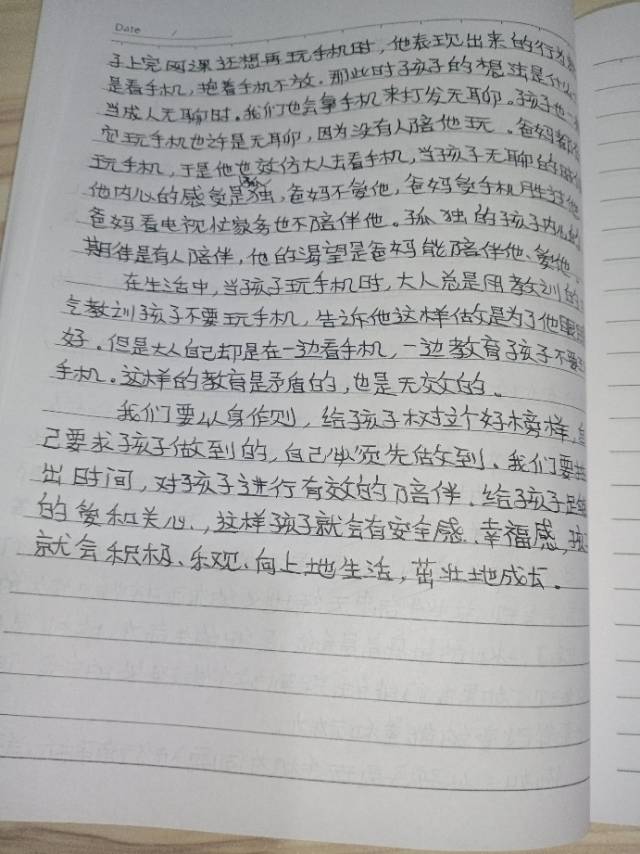 Date /
子上完网课还想再玩手机时，他表现出来的行为就
是看手机，抱着手机不放。那此时孩子的想法是什么
当成人无聊时，我们也会拿手机来打发无聊。孩子也一
它玩手机也许是无聊，因为没有人陪他玩。爸妈都在
玩手机，于是他也效仿大人去看手机，当孩子无聊的时
他内心的感觉是孤独，爸妈不爱他，爸妈爱手机胜过他
爸妈看电视忙家务也不陪伴他。孤独的孩子内心的
期待是有人陪伴，他的渴望是爸妈能陪伴他、爱他。
在生活中，当孩子玩手机时，大人总是用教训的
气教训孩子不要玩手机，告诉他这样做是为了他眼睛
好。但是大人自己却是在一边看手机，一边教育孩子不要
手机。这样的教育是矛盾的，也是无效的。
我们要以身作则，给孩子树立个好榜样，自
己要求孩子做到的，自己必须先做到。我们要抽
出时间，对孩子进行有效的陪伴。给孩子足够
的爱和关心，这样孩子就会有安全感、幸福感，孩
就会积极、乐观、向上地生活，茁壮地成长。